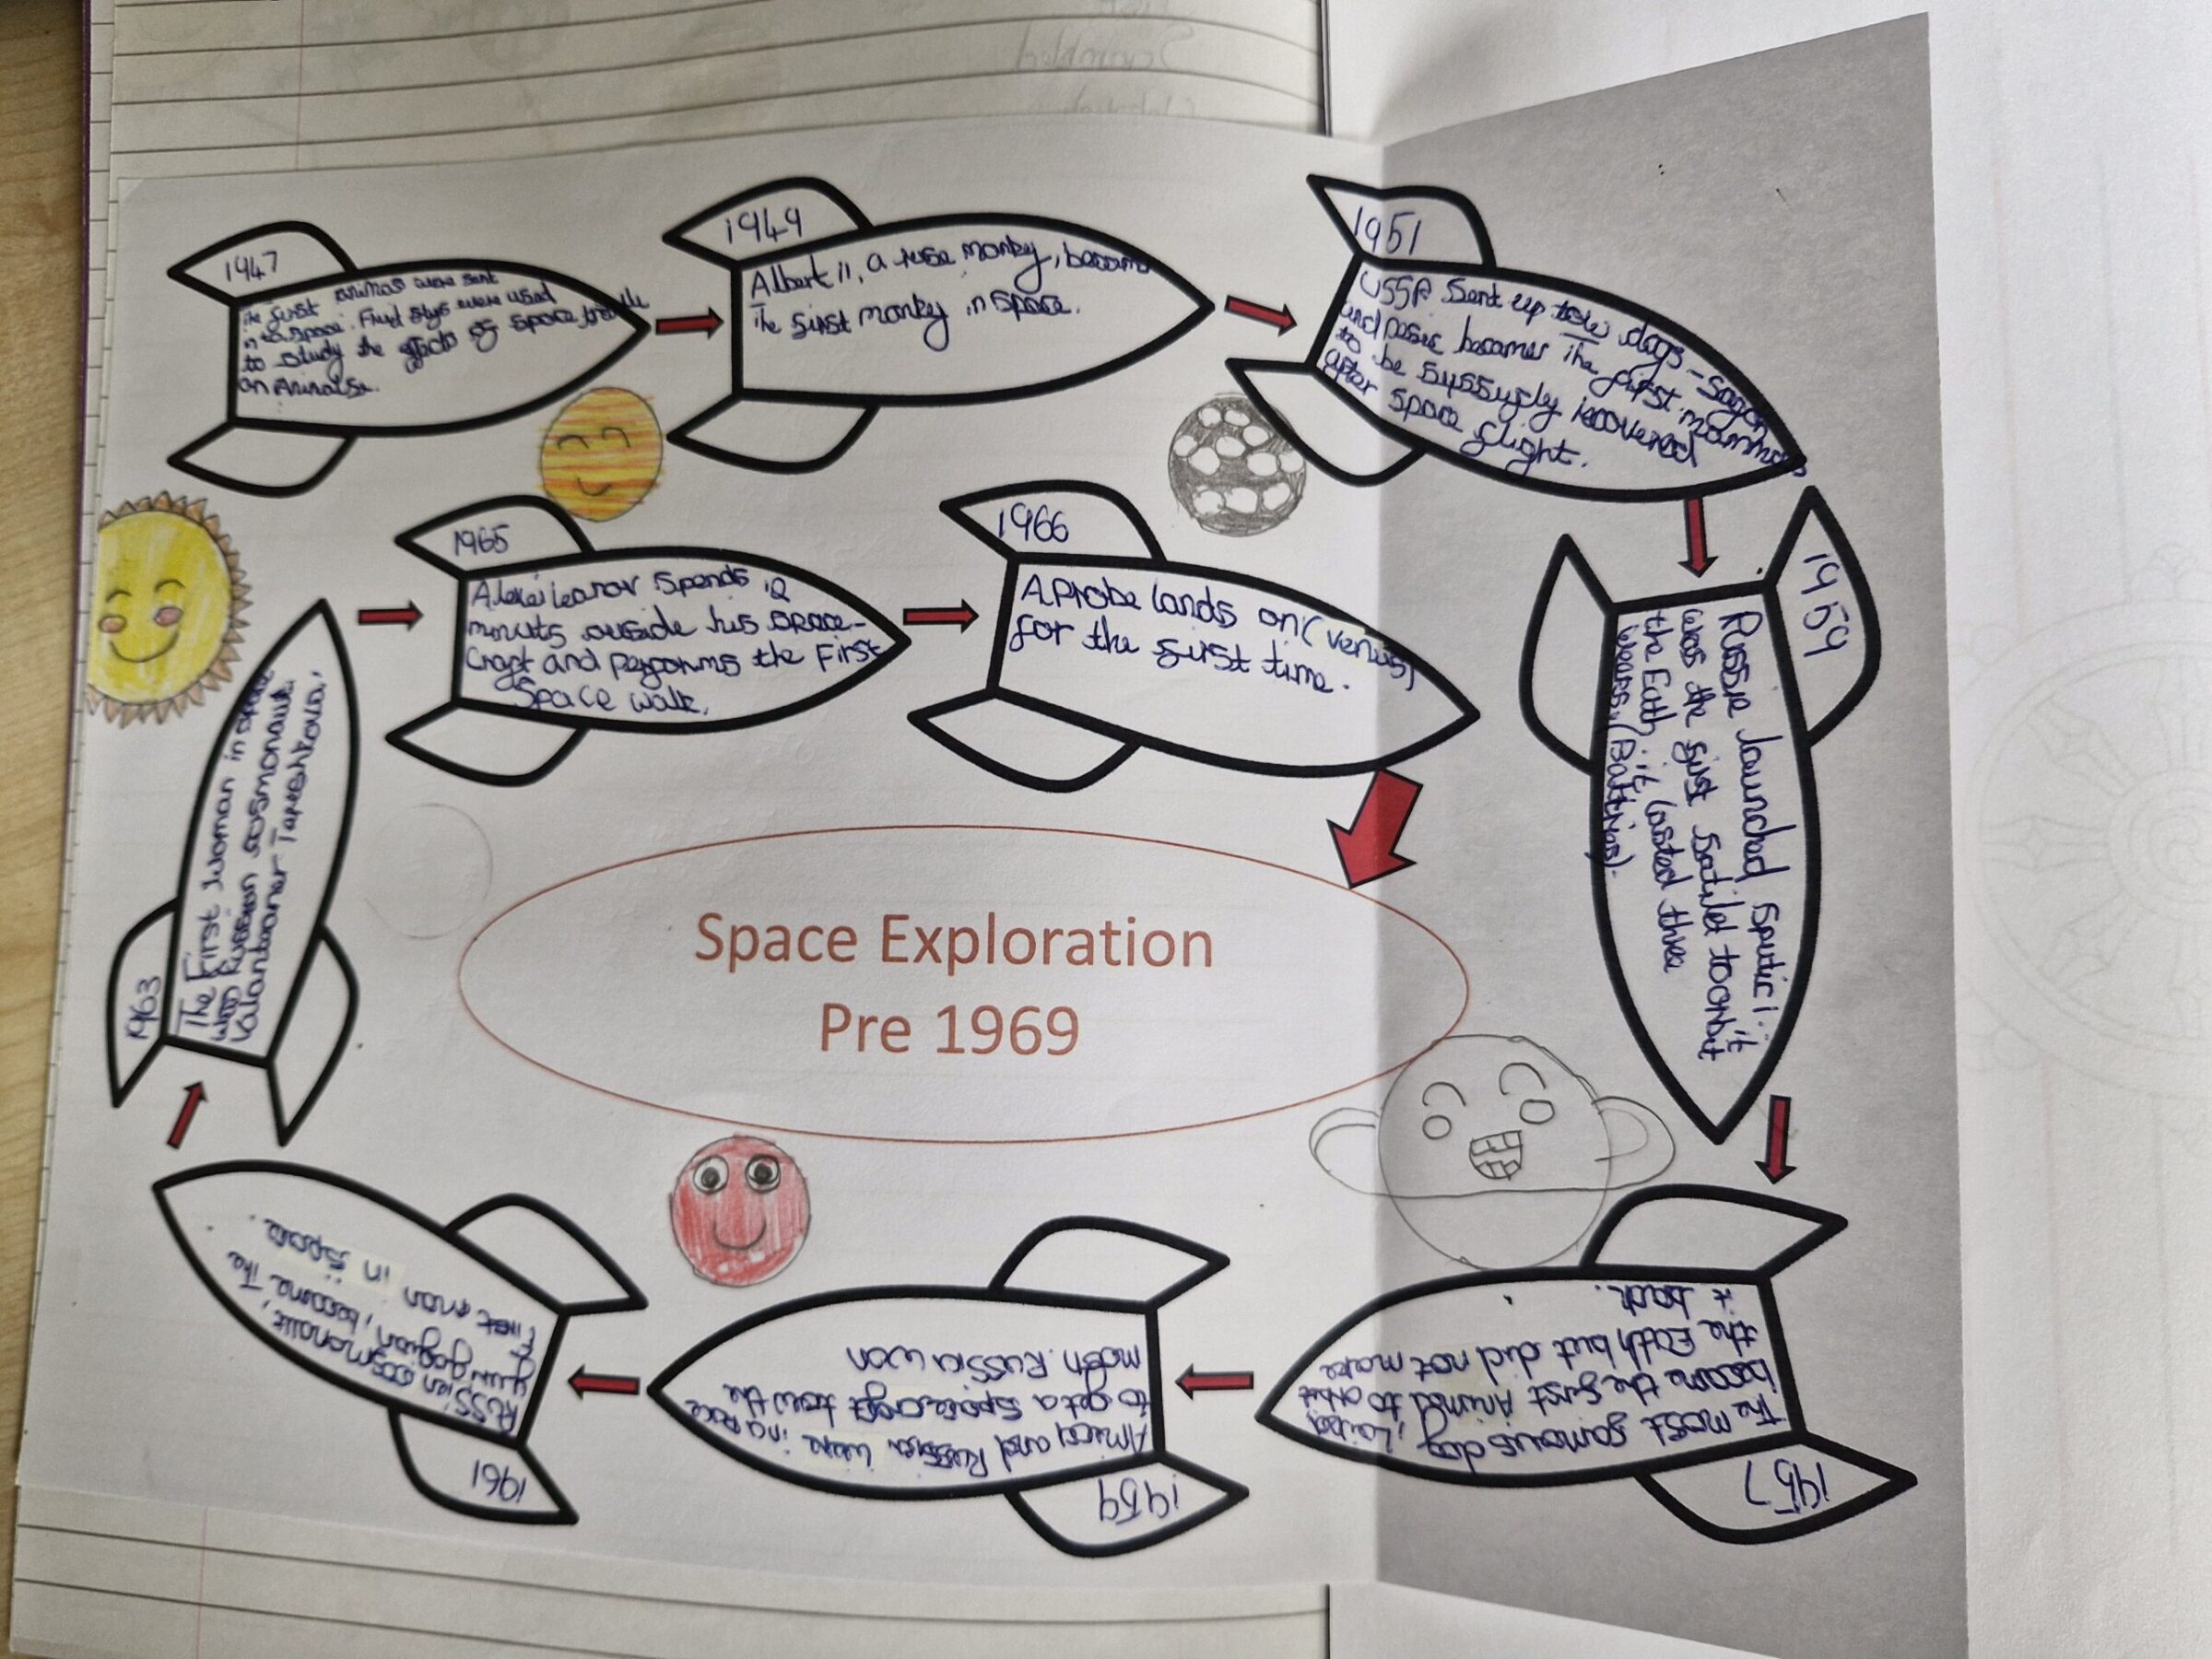 1947
The first animas were sent
into space. Fruit flys were used
to study the effects of space travle
on Animalse.
1949
Albert II, a ruse monky, became
The first monky in space.
1951
USSR Sent up tow dogs -
and becomes The first mammals
to be sussufly recovered
after space flight.
1959
Russia launched Sputic 1: it
was the first satilet to orbit
the Eath it lasted three
(Battries).
1957
The most famous dog, Laika,
became the first Animal to orbit
the Eath but did not make
it back.
1959
America and Russia were in a race
to get a spacecraft to the
moon. Russia won
1961
Russien cosmonaut,
gagian, became The
First man in space.
1963
The First Woman in space
was Russian cosmonaut
Valantaner Tareshkova,
1965
Alexei Leanov spends 12
minuts ouside his space-
craft and performs the First
Space walk.
1966
A Probe lands on (venus)
for the first time.
Space Exploration
Pre 1969
Scrambled